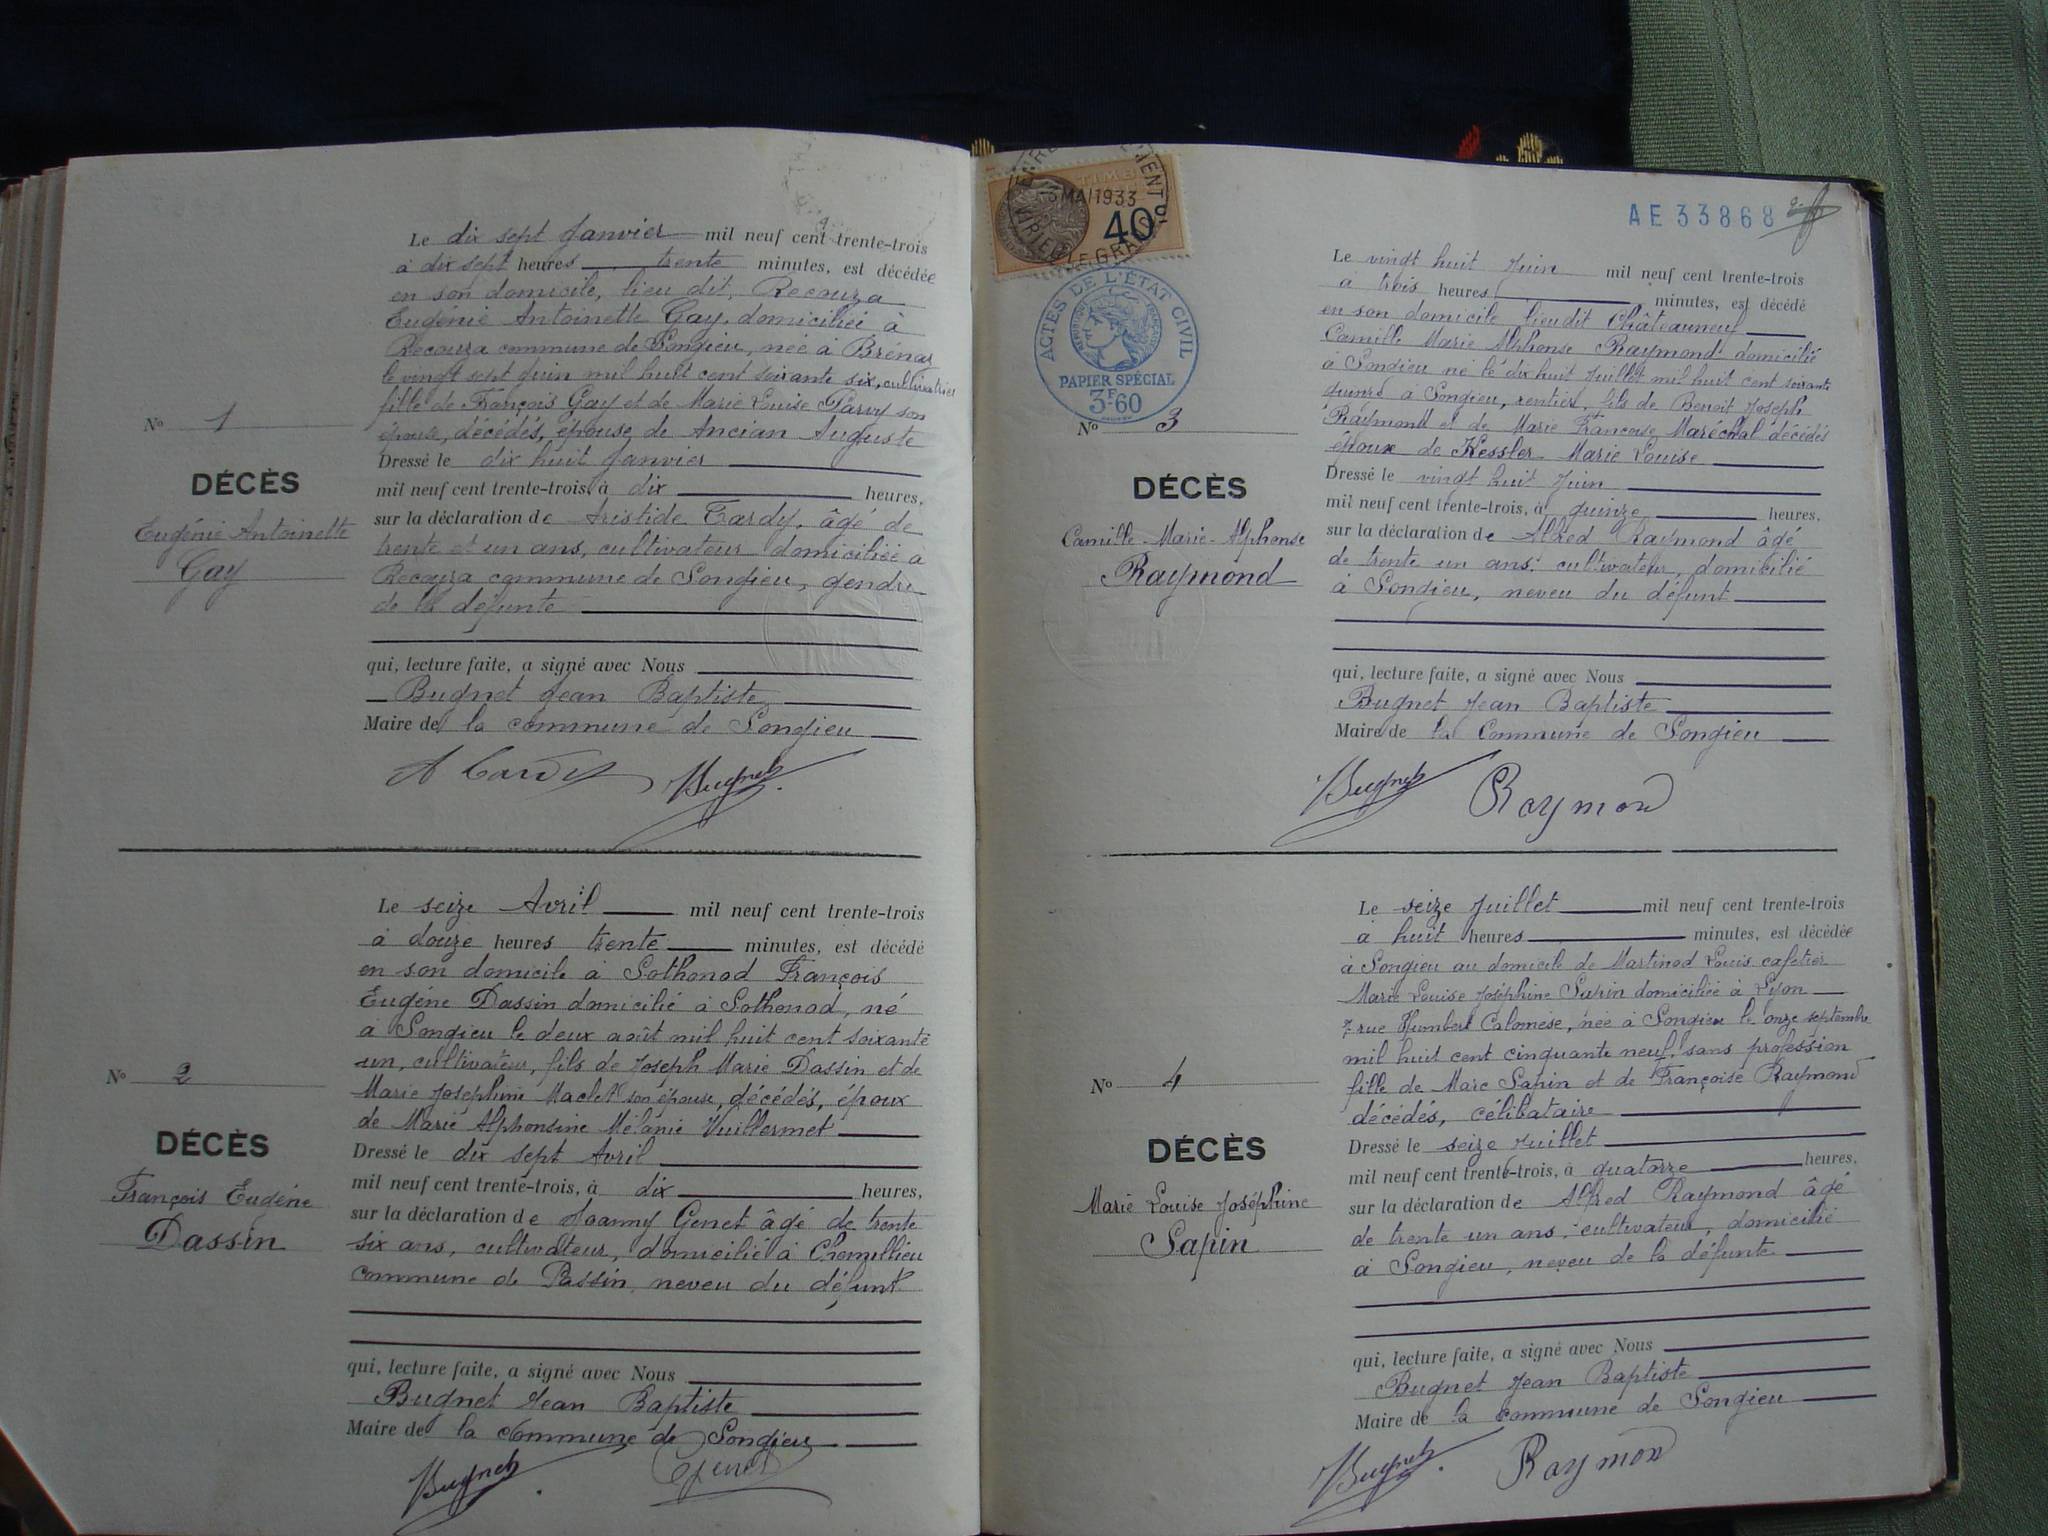 Le dix sept Janvier mil neuf cent trente-trois
à dix sept heures trente minutes, est décédée
en son domicile, lieu dit, Recouza
Eugénie Antoinette Gay, domiciliée à
Recouza commune de Songieu, née à Brénaz
le vingt sept Juin mil huit cent soixante six, cultivatrice
fille de François Gay et de Marie Louise Parvy son
épouse, décédés, épouse de Ancian Auguste
Dressé le dix huit Janvier
mil neuf cent trente-trois, à dix heures,
sur la déclaration de Aristide Tardy, âgé de
trente et un ans, cultivateur domiciliée à
Recouza commune de Songieu, gendre
de la défunte
qui, lecture faite, a signé avec Nous
Bugnet Jean Baptiste
Maire de la commune de Songieu
A Tardy Bugnet
No 1
DÉCÈS
Eugénie Antoinette
Gay
Le seize Avril mil neuf cent trente-trois
à douze heures trente minutes, est décédé
en son domicile à Sothonod François
Eugéne Dassin domicilié à Sothonod, né
à Songieu le deux août mil huit cent soixante
un, cultivateur, fils de Joseph Marie Dassin et de
Marie Joséphine Maclet son épouse, décédés, époux
de Marie Alphonsine Mélanie Vuillermet
Dressé le dix sept Avril
mil neuf cent trente-trois, à dix heures,
sur la déclaration de Joanny Genet âgé de trente
six ans, cultivateur, domicilié à Chemillieu
commune de Passin, neveu du défunt
qui, lecture faite, a signé avec Nous
Bugnet Jean Baptiste
Maire de la Commune de Songieu
Bugnet Genet
No 2
DÉCÈS
François Eugéne
Dassin
TIMB
MAI 1933
40c
VIRIEU-LE-GRAND
ACTES DE L'ÉTAT CIVIL
RÉPUBLIQUE FRANÇAISE
PAPIER SPÉCIAL
3F60
AE 33868
Le vingt huit Juin mil neuf cent trente-trois
à trois heures minutes, est décédé
en son domicile lieudit Châteauneuf
Camille Marie Alphonse Raymond domicilié
à Songieu né le dix huit Juillet mil huit cent soixante
quinze à Songieu, rentier, fils de Benoît Joseph
Raymond et de Marie Françoise Maréchal décédés
époux de Kessler Marie Louise
Dressé le vingt huit Juin
mil neuf cent trente-trois, à quinze heures,
sur la déclaration de Alfred Raymond âgé
de trente un ans, cultivateur, domicilié
à Songieu, neveu du défunt
qui, lecture faite, a signé avec Nous
Bugnet Jean Baptiste
Maire de la Commune de Songieu
Bugnet Raymond
No 3
DÉCÈS
Camille-Marie-Alphonse
Raymond
Le seize Juillet mil neuf cent trente-trois
à huit heures minutes, est décédée
à Songieu au domicile de Martinod Louis cafetier
Marie Louise Joséphine Sapin domiciliée à Lyon
7 rue Humbert Colomèse, née à Songieu le onze septembre
mil huit cent cinquante neuf, sans profession
fille de Marc Sapin et de Françoise Raymond
décédés, célibataire
Dressé le seize Juillet
mil neuf cent trente-trois, à quatorze heures,
sur la déclaration de Alfred Raymond âgé
de trente un ans, cultivateur, domicilié
à Songieu, neveu de la défunte
qui, lecture faite, a signé avec Nous
Bugnet Jean Baptiste
Maire de la commune de Songieu
Bugnet Raymond
No 4
DÉCÈS
Marie Louise Joséphine
Sapin